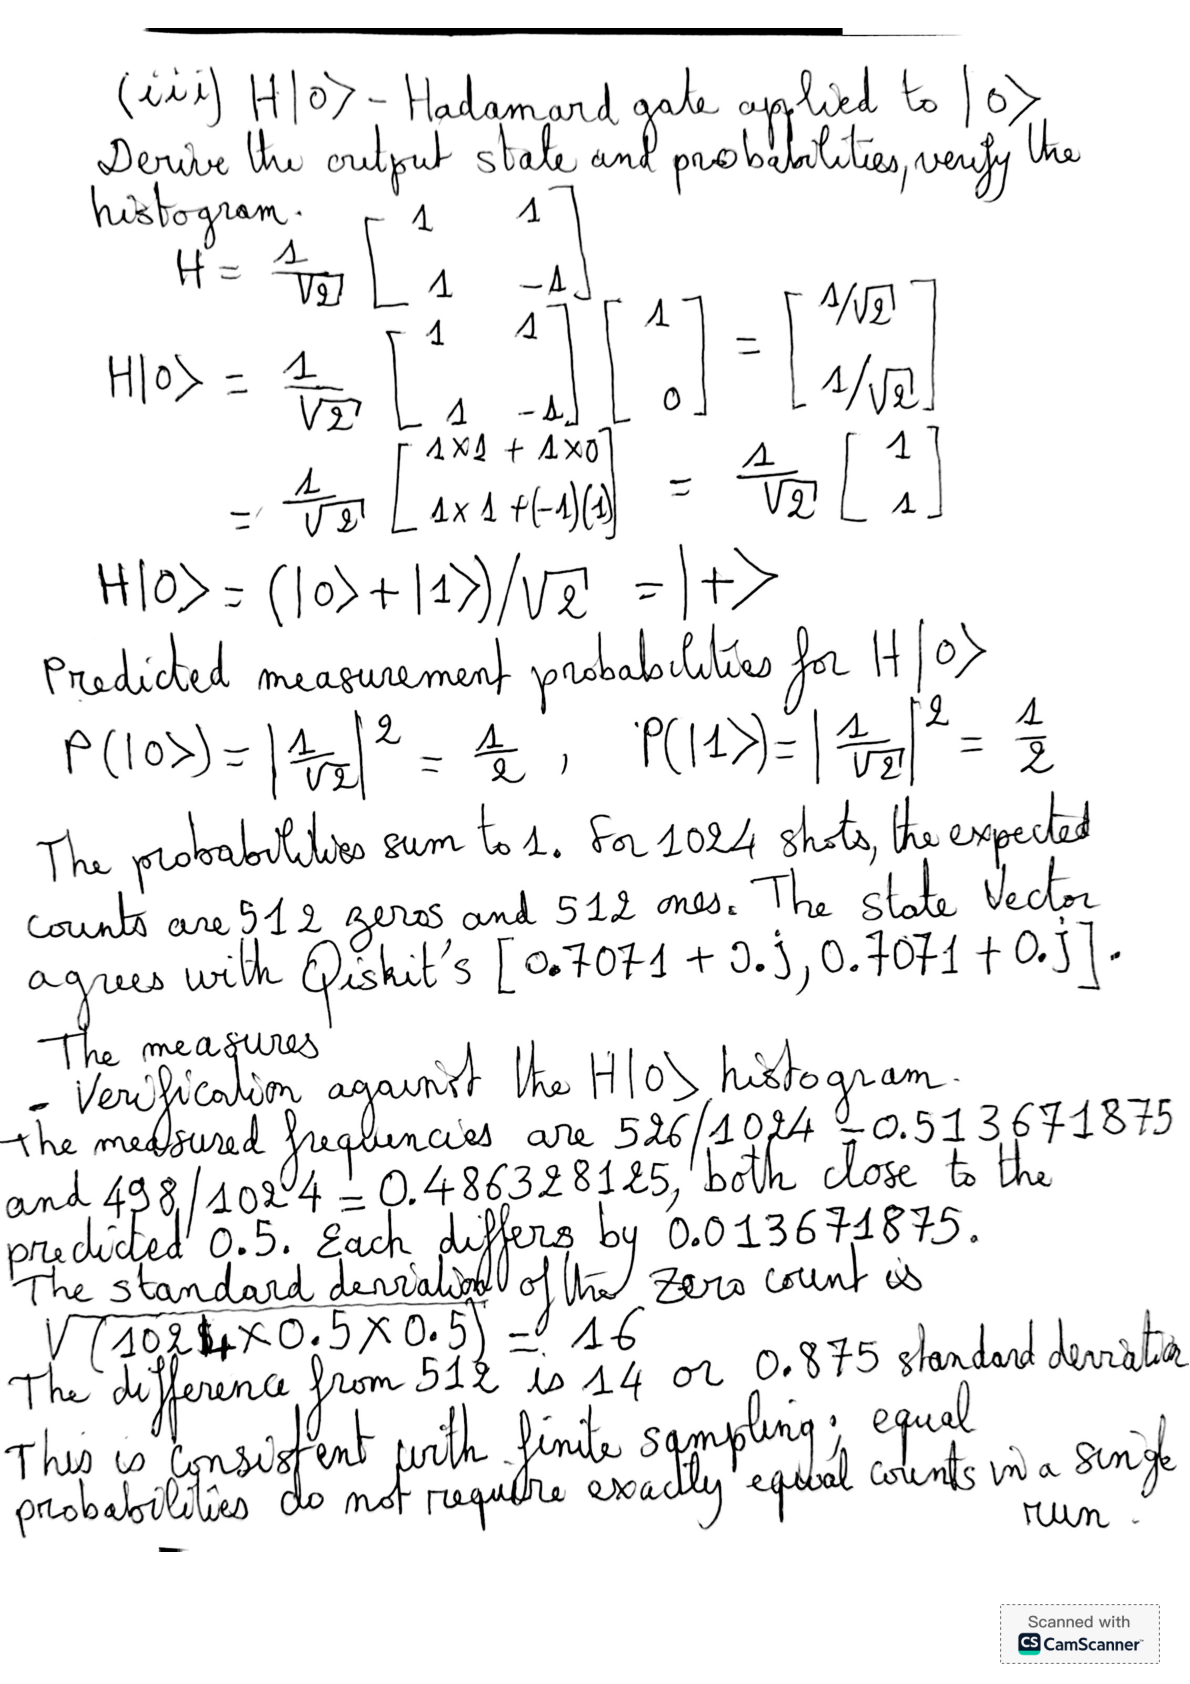 (iii) H|0> - Hadamard gate applied to |0>
Derive the output state and probabilities, verify the
histogram.
H = 1/√2 [1 1; 1 -1]
H|0> = 1/√2 [1 1; 1 -1] [1; 0] = [1/√2; 1/√2]
= 1/√2 [1×1 + 1×0; 1×1 +(-1)(1)] = 1/√2 [1; 1]
H|0> = (|0> + |1>)/√2 = |+>
Predicted measurement probabilities for H|0>
P(|0>) = |1/√2|² = 1/2 , P(|1>) = |1/√2|² = 1/2
The probabilities sum to 1. For 1024 shots, the expected
counts are 512 zeros and 512 ones. The state vector
agrees with Qiskit's [0.7071 + 0.j, 0.7071 + 0.j].
The measures
- Verification against the H|0> histogram.
The measured frequencies are 526/1024 = 0.513671875
and 498/1024 = 0.486328125, both close to the
predicted 0.5. Each differs by 0.013671875.
The standard deviation of the zero count is
√(1024×0.5×0.5) = 16
The difference from 512 is 14 or 0.875 standard deviation
This is consistent with finite sampling; equal
probabilities do not require exactly equal counts in a single
run.
Scanned with
CS CamScanner